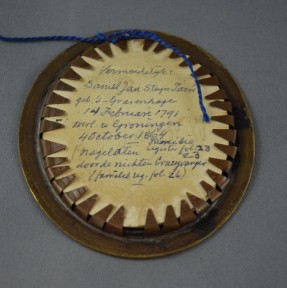 Vermoedelijk:
Daniel Jan Steyn Parvé
geb. 's-Gravenhage
14 Februari 1791
overl. te Groningen
4 October 1864
Nagelaten
familie
register fol. 23
door de nichten
(familie reg. fol. 26)